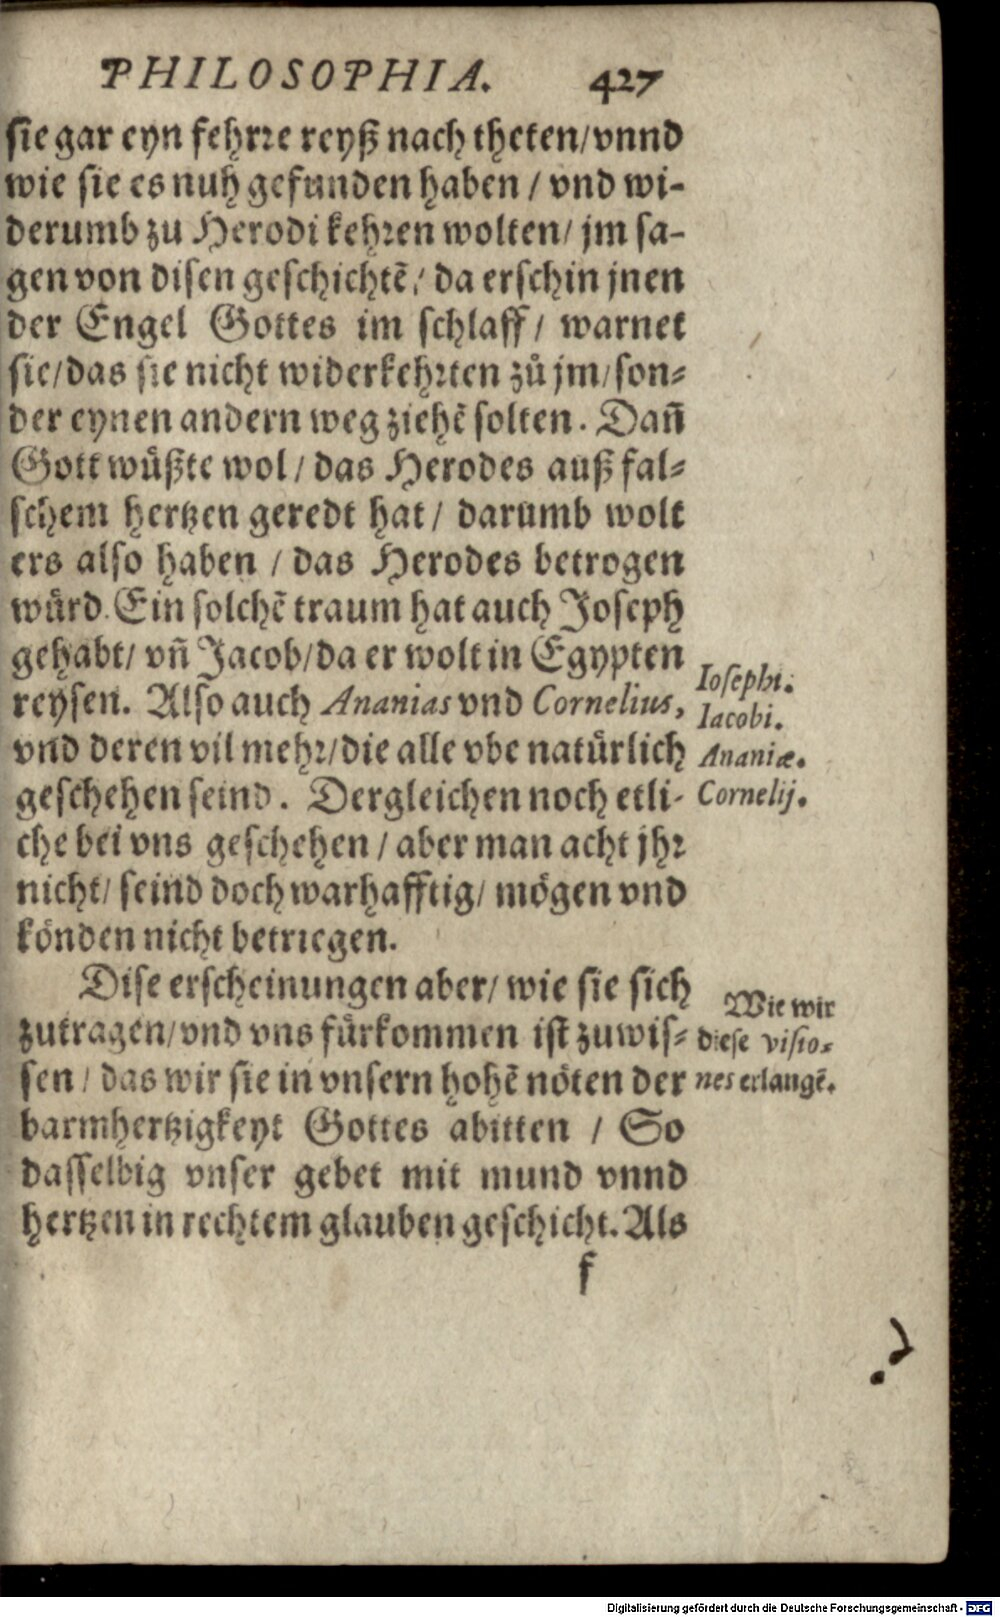 PHILOSOPHIA. 427
sie gar eyn fehrre reyß nach theten/vnnd
wie sie es nuh gefunden haben / vnd wi-
derumb zu Herodi kehren wolten/ jm sa-
gen von disen geschichtẽ/ da erschin jnen
der Engel Gottes im schlaff/ warnet
sie/das sie nicht widerkehrten zů jm/son-
der eynen andern weg ziehẽ solten. Dañ
Gott wůßte wol/ das Herodes auß fal-
schem hertzen geredt hat/ darumb wolt
ers also haben / das Herodes betrogen
würd. Ein solchẽ traum hat auch Joseph
gehabt/ vñ Jacob/da er wolt in Egypten
reysen. Also auch Ananias vnd Cornelius,
vnd deren vil mehr/die alle vbe natürlich
geschehen seind. Dergleichen noch etli-
che bei vns geschehen / aber man acht jhr
nicht/ seind doch warhafftig/ mögen vnd
könden nicht betriegen.
Iosephi.
Iacobi.
Ananiæ.
Cornelij.
Dise erscheinungen aber/ wie sie sich
zutragen/vnd vns fürkommen ist zuwis-
sen/ das wir sie in vnsern hohẽ nöten der
barmhertzigkeyt Gottes abitten / So
dasselbig vnser gebet mit mund vnnd
hertzen in rechtem glauben geschicht. Als
Wie wir
diese visio-
nes erlangẽ.
f
?
Digitalisierung gefördert durch die Deutsche Forschungsgemeinschaft - DFG